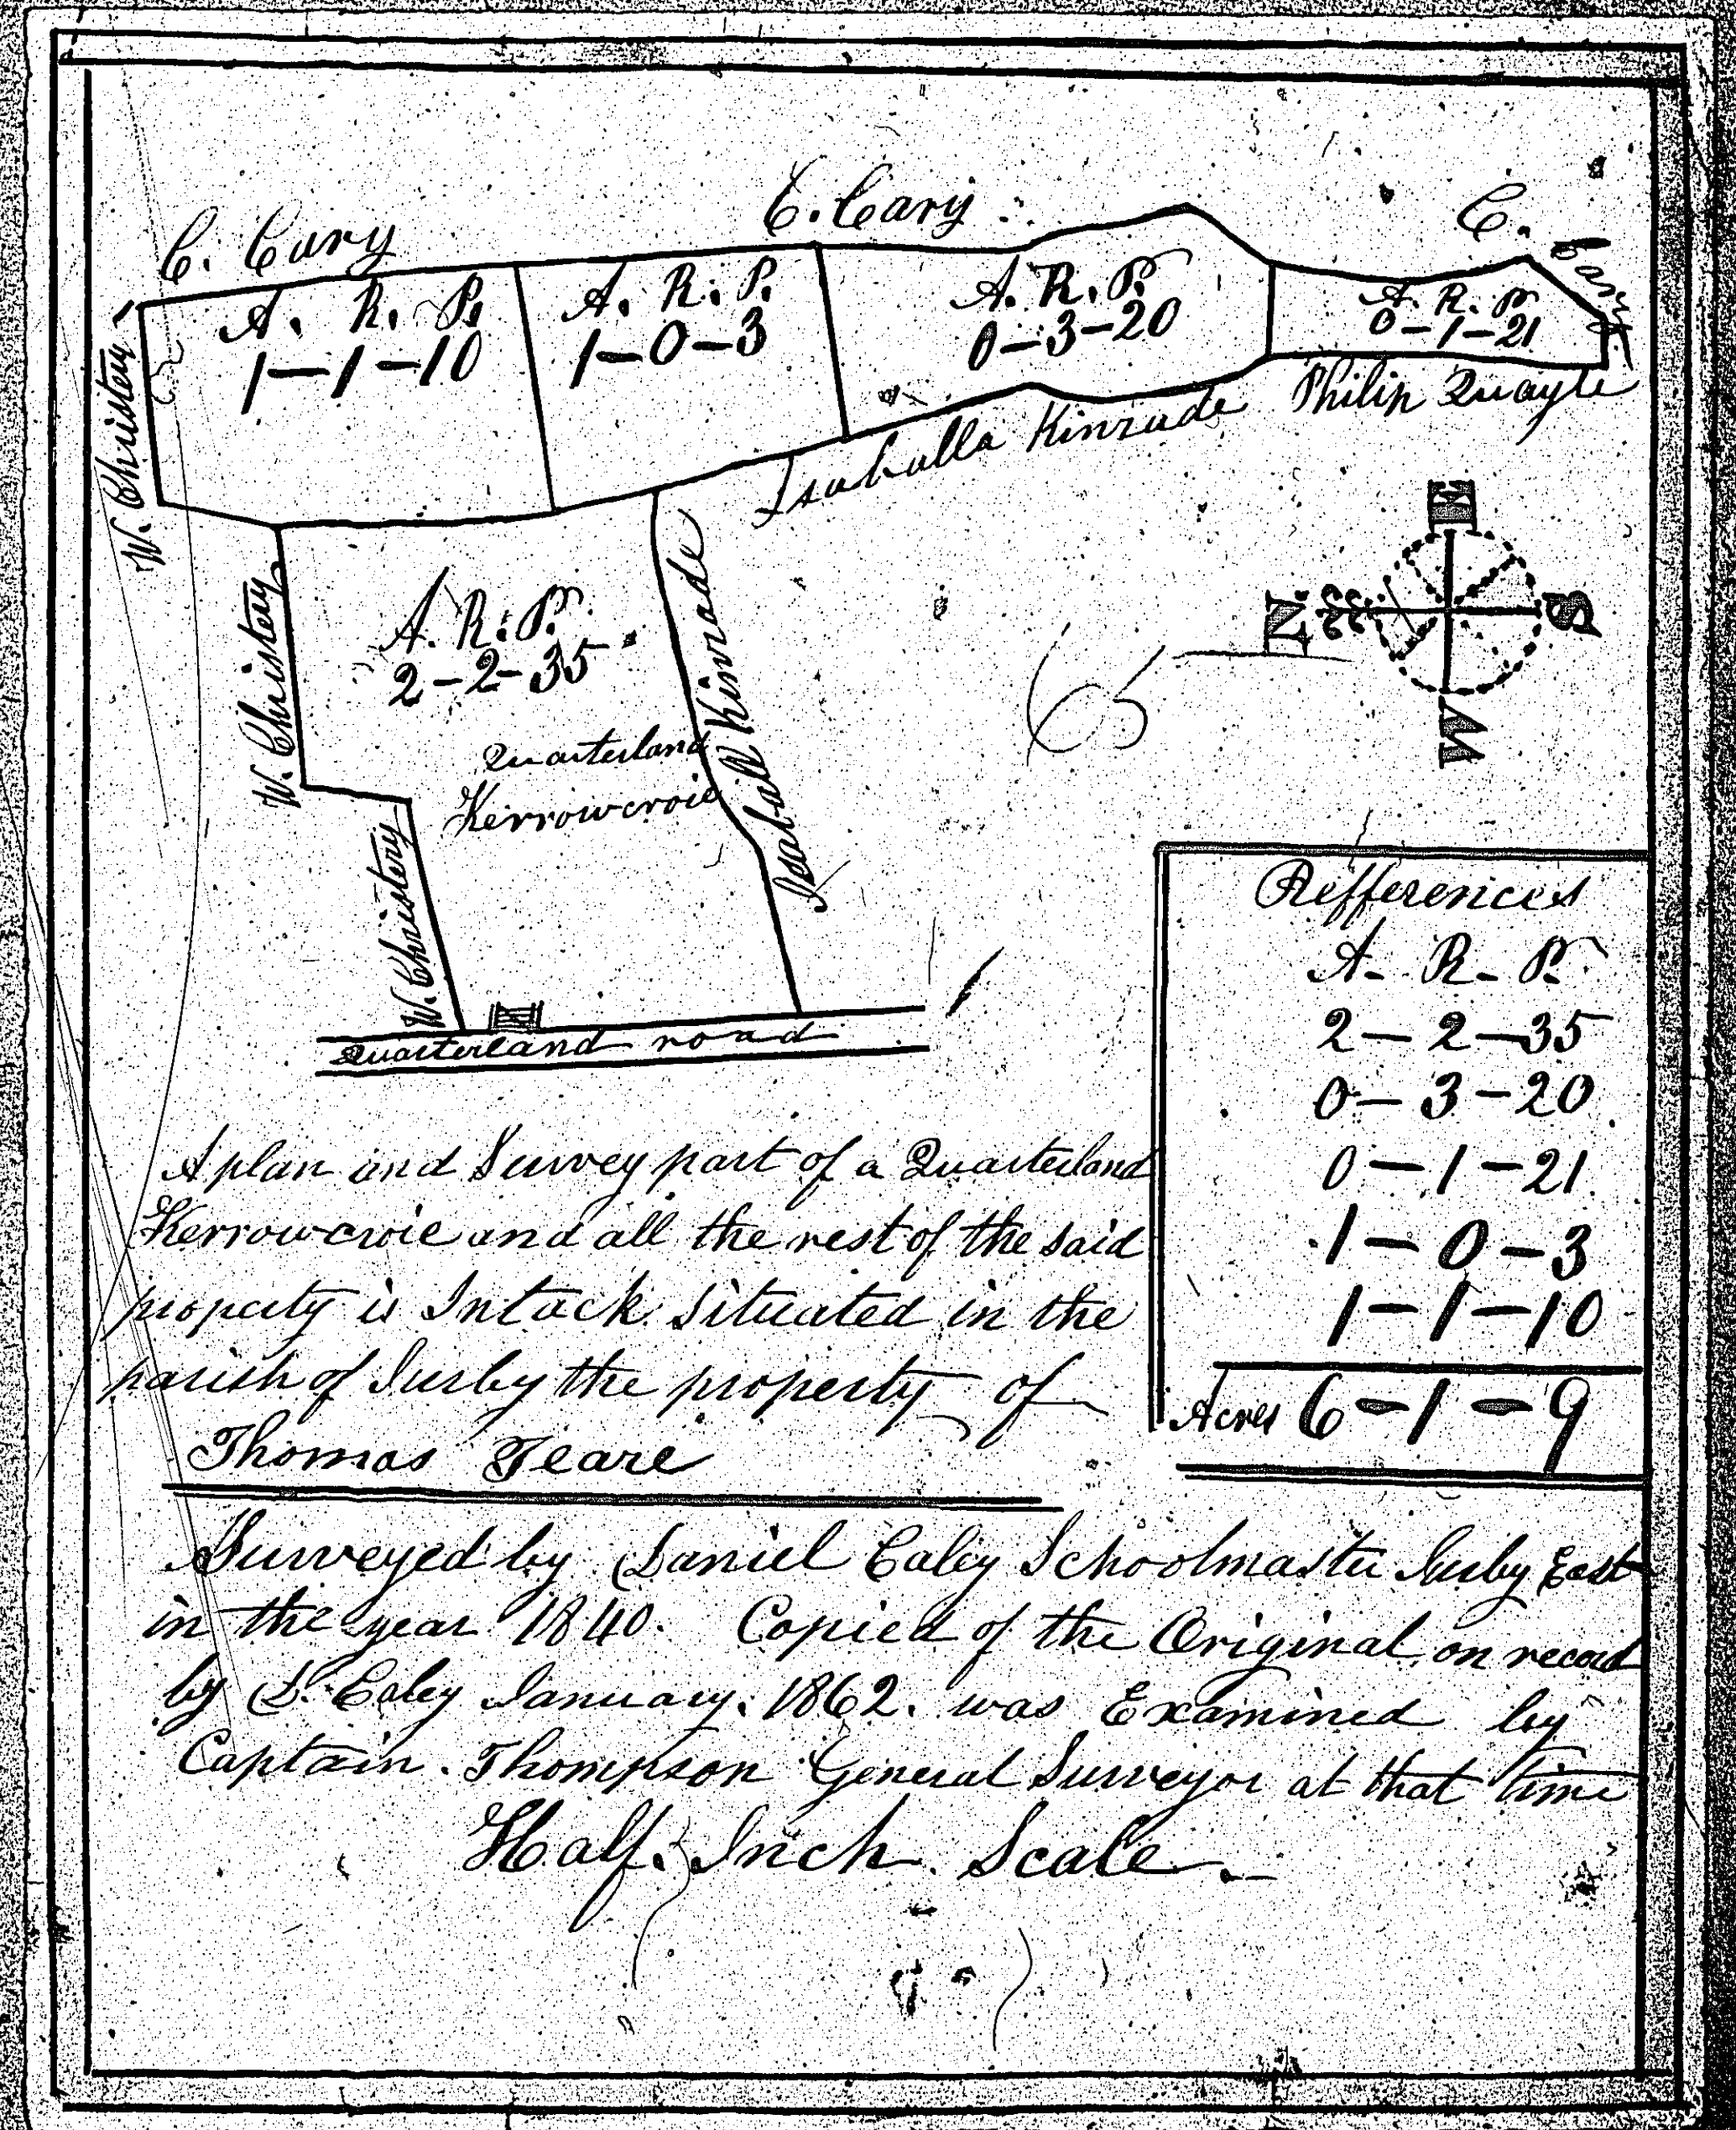 C. Cary
C. Cary
C. Cary
A. R. P.
1-1-10
A. R. P.
1-0-3
A. R. P.
0-3-20
A. R. P.
0-1-21
W. Christery
Isabulla Kinrade
Philip Quayle
W. Christery
A. R. P.
2-2-35
Quarterland
Kerrowcroie
Isaball Kinrade
W. Christery
E
N
S
W
65
Quarterland road
Refferences
A- R- P.
2-2-35
0-3-20
0-1-21
1-0-3
1-1-10
Acres 6-1-9
A plan and Survey part of a Quarterland
Kerrowcroie and all the rest of the said
property is Intack situated in the
parish of Jurby the property of
Thomas Teare
Surveyed by Daniel Caley Schoolmaster Jurby East
in the year 1840. Copied of the Original on record
by D. Caley January. 1862. was Examined by
Captain. Thompson General Surveyor at that time
Half. Inch. Scale